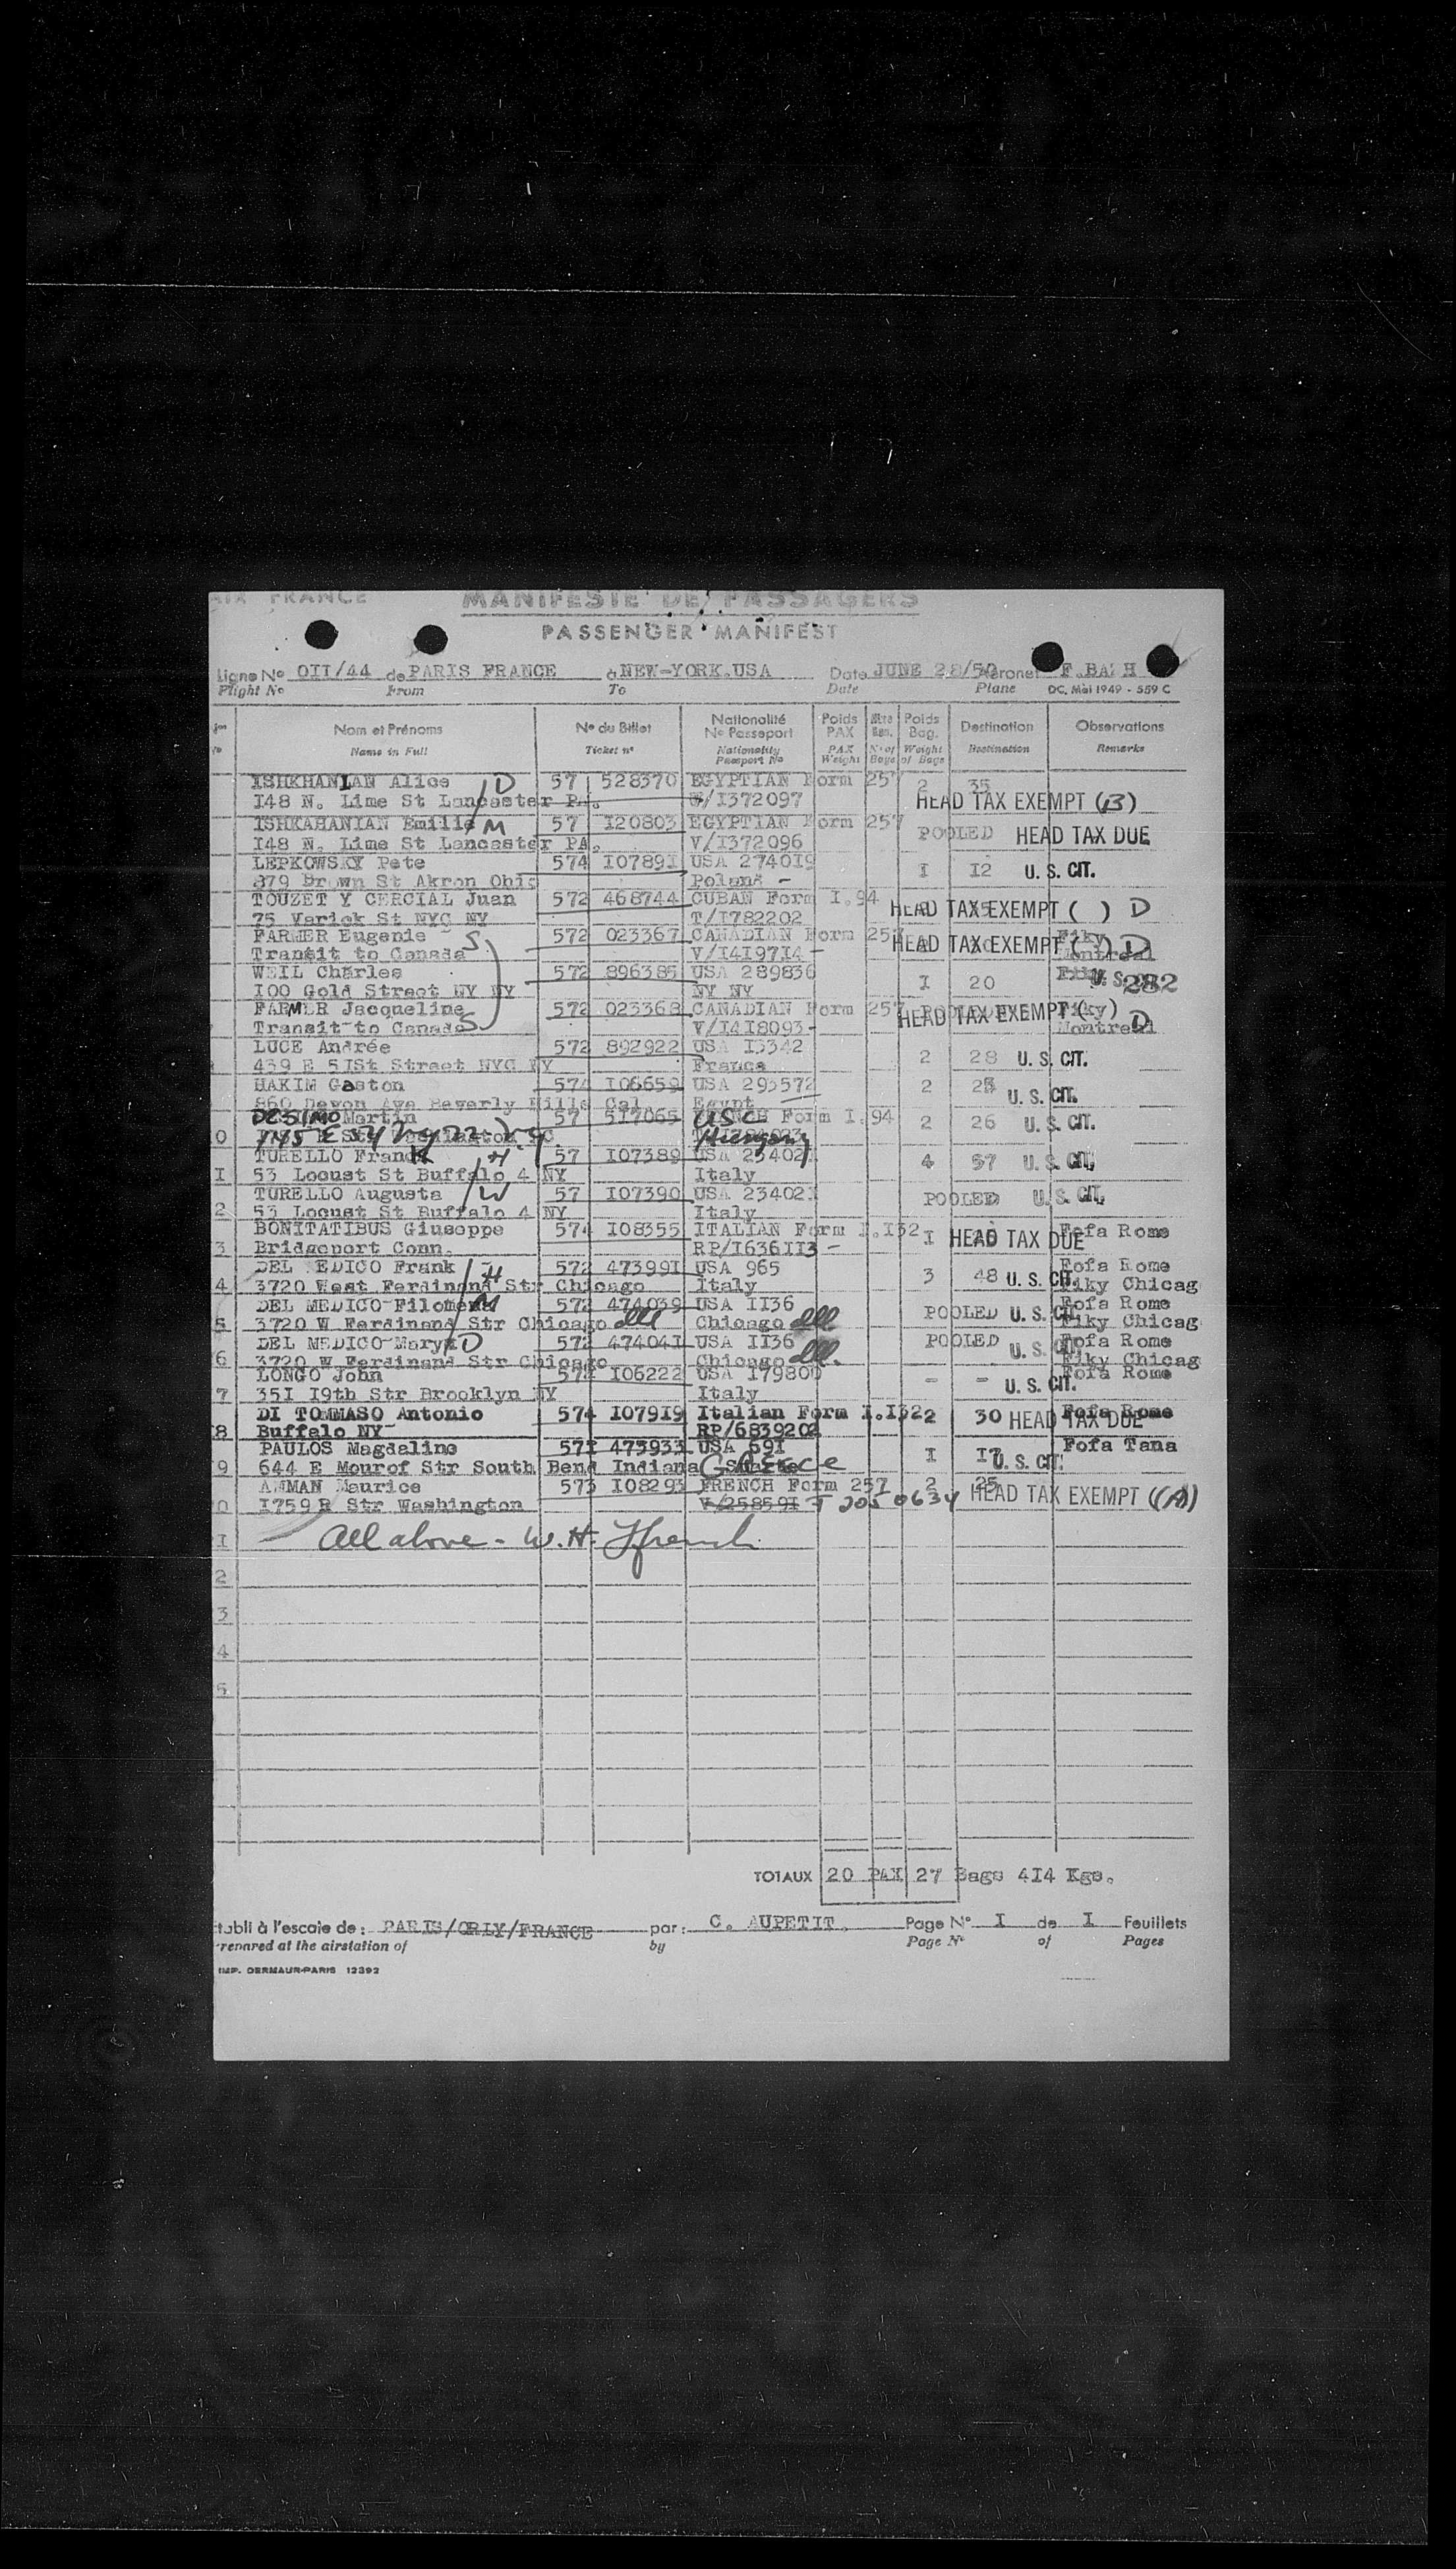 AIR FRANCE MANIFESTE DE PASSAGERS
PASSENGER MANIFEST
Ligne No OII/44 de PARIS FRANCE à NEW-YORK.USA Date JUNE 28/50 Aéronef F.BA H
Flight No From To Date Plane DC. Mai 1949 - 559 C
Nom et Prénoms No du Billet Nationalité No Passeport Poids PAX Poids Bag. Destination Observations
Name in Full Ticket no Nationality Passport No PAX Weight No of Bags Weight of Bags Destination Remarks
ISHKHANIAN Alice /D 57 528370 EGYPTIAN Form 257 2 35
I48 N. Lime St Lancaster PA. V/I372097 HEAD TAX EXEMPT (B)
ISHKAHANIAN Emilie /M 57 I20803 EGYPTIAN Form 257 POOLED HEAD TAX DUE
I48 N. Lime St Lancaster PA. V/I372096
LEPKOWSKY Pete 574 I0789I USA 2740I9 I I2 U.S. CIT.
879 Brown St Akron Ohio Poland -
TOUZET Y CERCIAL Juan 572 468744 CUBAN Form I.94 HEAD TAX EXEMPT ( ) D
75 Varick St NYC NY T/I782202
FARMER Eugenie S 572 023367 CANADIAN Form 257 HEAD TAX EXEMPT ( ) D Fiky
Transit to Canada V/I4I97I4 - Montreal
WEIL Charles 572 896385 USA 289836 I 20 U.S. 282
I00 Gold Street NY NY NY NY
FARMER Jacqueline 572 023368 CANADIAN Form 257 HEAD TAX EXEMPT ( ) Fiky
Transit to Canada S V/I4I8093 - Montreal D
LUCE Andrée 572 892922 USA I3342 2 28 U.S. CIT.
439 E 5ISt Street NYC NY France
HAKIM Gaston 574 I06659 USA 293572 2 U.S. CIT.
860 Devon Ave Beverly Hills Cal Egypt
DESIMO Martin 57 5I7065 USC Form I.94 2 26 U.S. CIT.
0 Hungary
TURELLO Frank H 57 I07389 USA 23402I 4 57 U.S. CIT,
I 53 Locust St Buffalo 4 NY Italy
TURELLO Augusta /W 57 I07390 USA 23402I POOLED U.S. CIT,
2 53 Locust St Buffalo 4 NY Italy
BONITATIBUS Giuseppe 574 I08355 ITALIAN Form I.I32 I HEAD TAX DUE Fofa Rome
3 Bridgeport Conn. RP/I636II3 -
DEL MEDICO Frank /H 572 47399I USA 965 3 48 U.S. CIT. Fofa Rome
4 3720 West Ferdinand Str Chicago Italy Fiky Chicag
DEL MEDICO Filomena 572 474039 USA II36 POOLED U.S. CIT Fofa Rome
5 3720 W Ferdinand Str Chicago Chicago Fiky Chicag
DEL MEDICO Mary D 572 47404I USA II36 POOLED U.S. CIT. Fofa Rome
6 3720 W Ferdinand Str Chicago Chicago Fiky Chicag
LONGO John 574 I06222 USA I79800 - - U.S. CIT. Fofa Rome
7 35I I9th Str Brooklyn NY Italy
DI TOMMASO Antonio 574 I079I9 Italian Form I.I32 2 30 HEAD TAX DUE Fofa Rome
8 Buffalo NY RP/6839202
PAULOS Magdaline 57I 473933 USA 69I I I7 U.S. CIT. Fofa Tana
9 644 E Mourof Str South Bend Indiana Greece
AMMAN Maurice 573 I08293 FRENCH Form 257 2 25 HEAD TAX EXEMPT (A)
0 I759 R Str Washington V/25859I T 2050634
I All above - W.H. Ffrench
2
3
4
5
TOTAUX 20 PAX 27 Bags 4I4 Kgs.
tabli à l'escale de: PARIS/ORLY/FRANCE par: C. AUPETIT. Page No I de I Feuillets
repared at the airstation of by Page No of Pages
IMP. DERMAUR-PARIS 12392